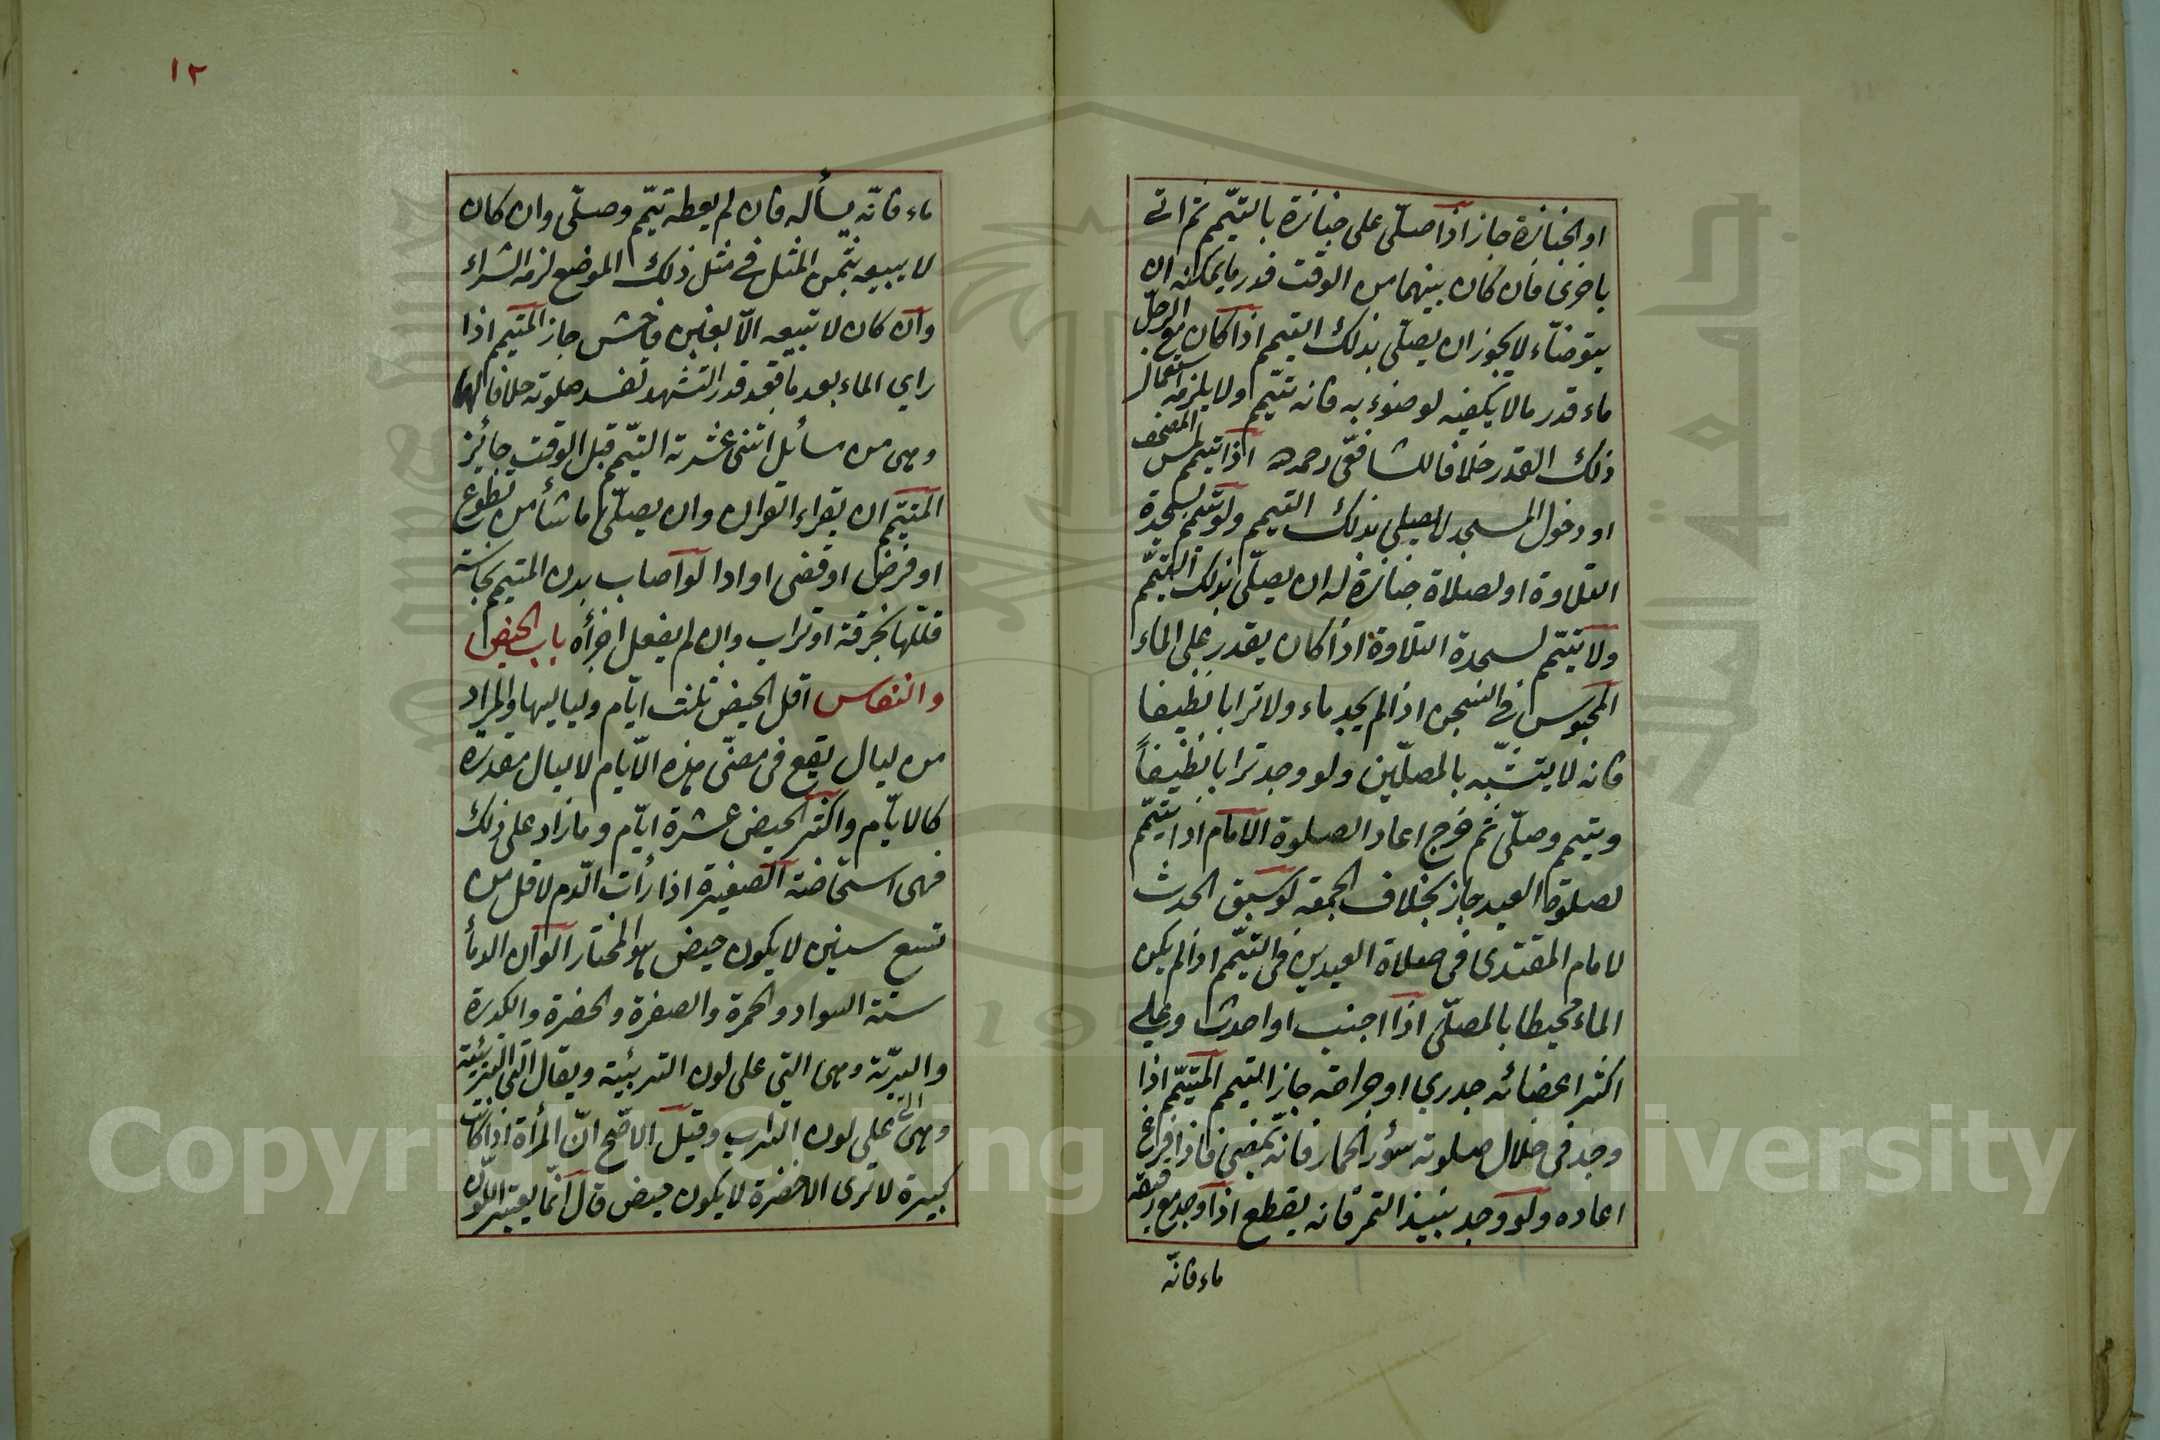 او الجنازة جاز اذا صلّى على جنازة بالتيمّم ثم اتى
باخرى فان كان بينهما من الوقت قدر ما يمكنه ان
يتوضّاء لا يجوز ان يصلّى بذلك التيمم اذا كان مع الرجل
ماء قدر ما لا يكفيه لوضوء به فانه تتيمم ولا يلزمه استعمال
ذلك القدر خلافا للشافعّى رحمه اذا تيمم لمس المصحف
او دخول المسجد لا يصلى بذلك التيمم ولو تيمم لسجدة
التلاوة او لصلاة جنازة له ان يصلّى بذلك التيمّم
ولا تيتمم لسجدة التلاوة اذا كان يقدر على الماء
المحبوس فى السجن اذا لم يجد ماء ولا ترابا نظيفا
فانه لا يتشبّه بالمصلّين ولو وجد ترابا نظيفاً
ويتيمم وصلّى ثم خرج اعاد الصلوة الامام اذا تيمّم
لصلوة العيد جاز بخلاف الجمعة لو سبق الحدث
لامام المقتدى فى صلاة العيدين فى التيمّم اذا لم يكن
الماء محيطا بالمصلّى اذا اجنب او احدث وعلى
اكثر اعضائه جدرى او جراحة جاز التيمم المتيمّم اذا
وجد فى خلال صلوته سؤر الحمار فانّه يمضى فاذا فرغ
اعاده ولو وجد بنبيذ التمر فانه يقطع اذا وجد مع رفيقه
ماء فانّه
١٢
ماء فانّه يسأله فان لم يعطه تيمّم وصلّى وان كان
لا يبيعه بثمن المثل فى مثل ذلك الموضع لزمه الشراء
وان كان لا تبيعه الّا بغبن فاحش جاز المتيمم اذا
راى الماء بعد ما قعد قدر التشهد تفسد صلوته خلافا لهما
وهى من مسائل اثنى عشرته التيمّم قبل الوقت جائز
المتيمم ان يقراء القران وان يصلّى بها ما شأ من تطوع
او فرض او قضى او ادا لو اصاب بدن المتيمم نجاسة
قلّلها بخرقة او تراب وان لم يفعل اجزأه باب الحيض
والنفاس اقل الحيض ثلث ايّام ولياليها والمراد
من ليال يقع فى معنّى هذه الايّام لا ليال مقدرة
كالايّام واكثر الحيض عشرة ايّام وما زاد على ذلك
فهى استحاضة الصغيرة اذا رأت الّدم لاقل من
تسع سنين لا يكون حيض هو المختار الوان الدمأ
ستة السواد والحمرة والصفرة والخضرة والكدرة
والتربيّة وهى التى على لون التربئية ويقال التى التربئية
وهى التى على لون التراب وقيل الاصّح انّ المرأة اذا كانت
كبيرة لا ترى الا خضرة لا يكون حيض قال انّما يعتبر اللوّن
Copyright © King Saud University
1957